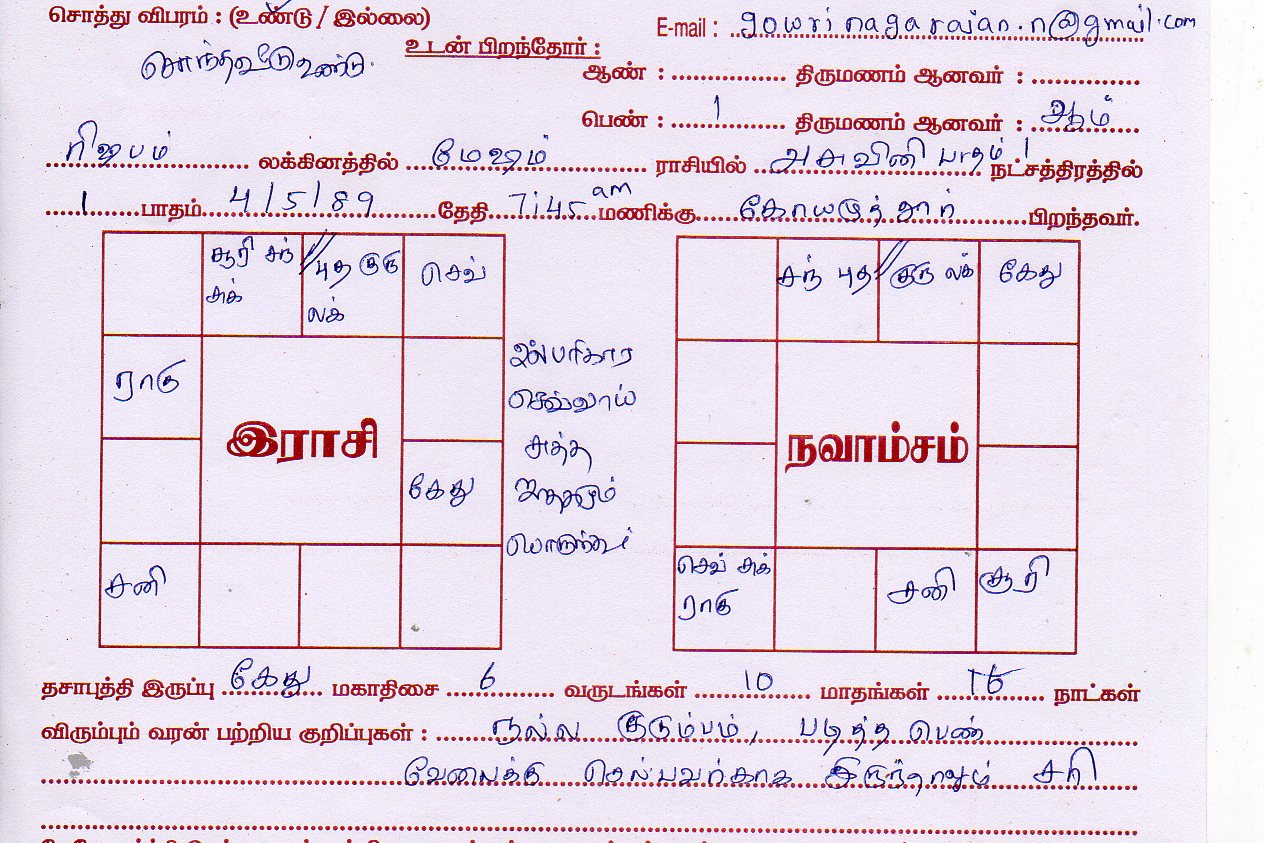 சொத்து விபரம் : (உண்டு / இல்லை)
E-mail : gowri nagarajan.n@gmail.com
சொந்த வீடு உண்டு.
உடன் பிறந்தோர் :
ஆண் : ................ திருமணம் ஆனவர் : ...............
பெண் : 1 திருமணம் ஆனவர் : ஆம்
ரிஷபம் லக்கினத்தில் மேஷம் ராசியில் அசுவினி பாதம் 1 நட்சத்திரத்தில்
1 பாதம் 4/5/89 தேதி 7:45 am மணிக்கு கோயமுத்தூர் பிறந்தவர்.
சூரி சந் சுக்
புத குரு லக்
செவ்
ராகு
இராசி
கேது
சனி
பரிகார
செவ்வாய்
பொருந்தும்
சந் புத
குரு லக்
கேது
நவாம்சம்
செவ் சுக் ராகு
சனி
சூரி
தசாபுத்தி இருப்பு கேது மகாதிசை 6 வருடங்கள் 10 மாதங்கள் 16 நாட்கள்
விரும்பும் வரன் பற்றிய குறிப்புகள் : நல்ல குடும்பம், படித்த பெண்
வேலைக்கு செல்பவர்காக இருந்தாலும் சரி